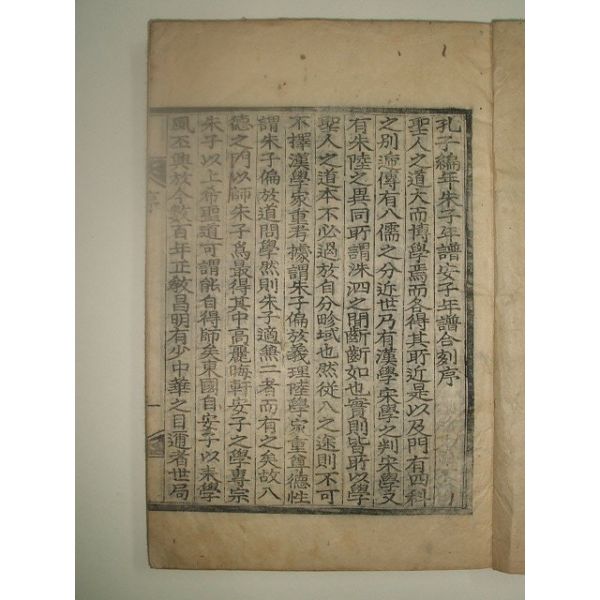 孔子編年朱子年譜安子年譜合刻序
聖人之道大而博學焉而各得其所近是以及門有四科
之別流傳有八儒之分近世乃有漢學宋學之判宋學又
有朱陸之異同所謂洙泗之間斷斷如也實則皆所以學
聖人之道本不必過於自分畛域也然從入之途則不可
不擇漢學家重考據謂朱子偏於義理陸學家重尊德性
謂朱子偏於道問學然則朱子適無二者而有之矣故入
德之門以師朱子爲最得其中高麗晦軒安子之學專宗
朱子以上希聖道可謂能自得師矣東國自安子以來學
風丕興於今數百年正教昌明有少中華之目邇者世局
序
一